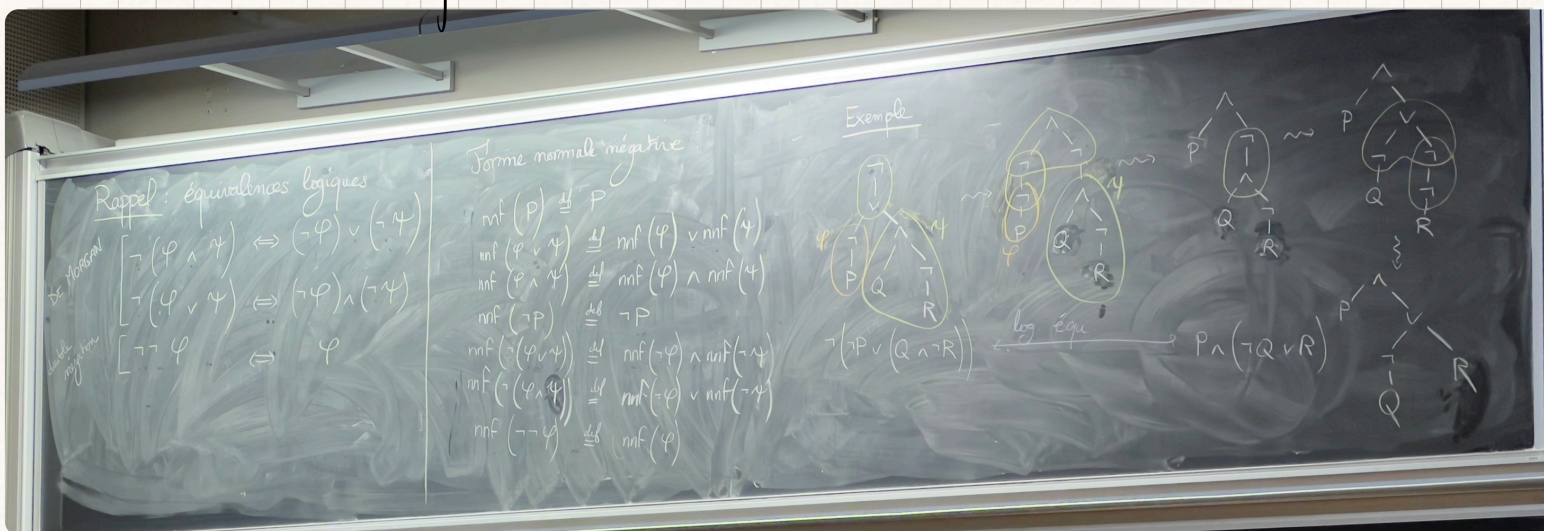 Rappel : équivalences logiques
DE MORGAN
¬(φ ∧ ψ) ⇔ (¬φ) ∨ (¬ψ)
¬(φ ∨ ψ) ⇔ (¬φ) ∧ (¬ψ)
double négation
¬¬φ ⇔ φ
Forme normale négative
nnf(P) ≝ P
nnf(φ ∨ ψ) ≝ nnf(φ) ∨ nnf(ψ)
nnf(φ ∧ ψ) ≝ nnf(φ) ∧ nnf(ψ)
nnf(¬P) ≝ ¬P
nnf(¬(φ∨ψ)) ≝ nnf(¬φ) ∧ nnf(¬ψ)
nnf(¬(φ∧ψ)) ≝ nnf(¬φ) ∨ nnf(¬ψ)
nnf(¬¬φ) ≝ nnf(φ)
Exemple
¬
∨
φ ¬ ∧ ψ
P Q ¬
R
⇝
∧
¬ ¬
¬ ∧ ψ
P Q ¬
φ R
⇝
∧
P ¬
∧
Q ¬
R
⇝
∧
P ∨
¬ ¬
Q ¬
R
⇝
∧
P ∨
¬ R
Q
¬(¬P ∨ (Q ∧ ¬R)) log équ P ∧ (¬Q ∨ R)